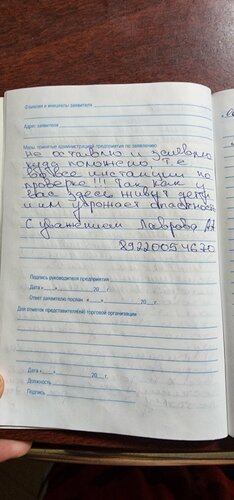 Фамилия и инициалы заявителя
Адрес заявителя
Меры, принятые администрацией предприятия по заявлению:
Не оставлю и заявлю
куда положено, т.е
во все инстанции по
проверке!!! Так как у
вас здесь живут дети
и им угрожает опасность
С уважением Лаврова
89220054670
Подпись руководителя предприятия
Дата « » 20 г.
Ответ заявителю послан « » 20 г.
Для отметок представителя(ей) торговой организации
Дата « » 20 г.
Должность
Подпись